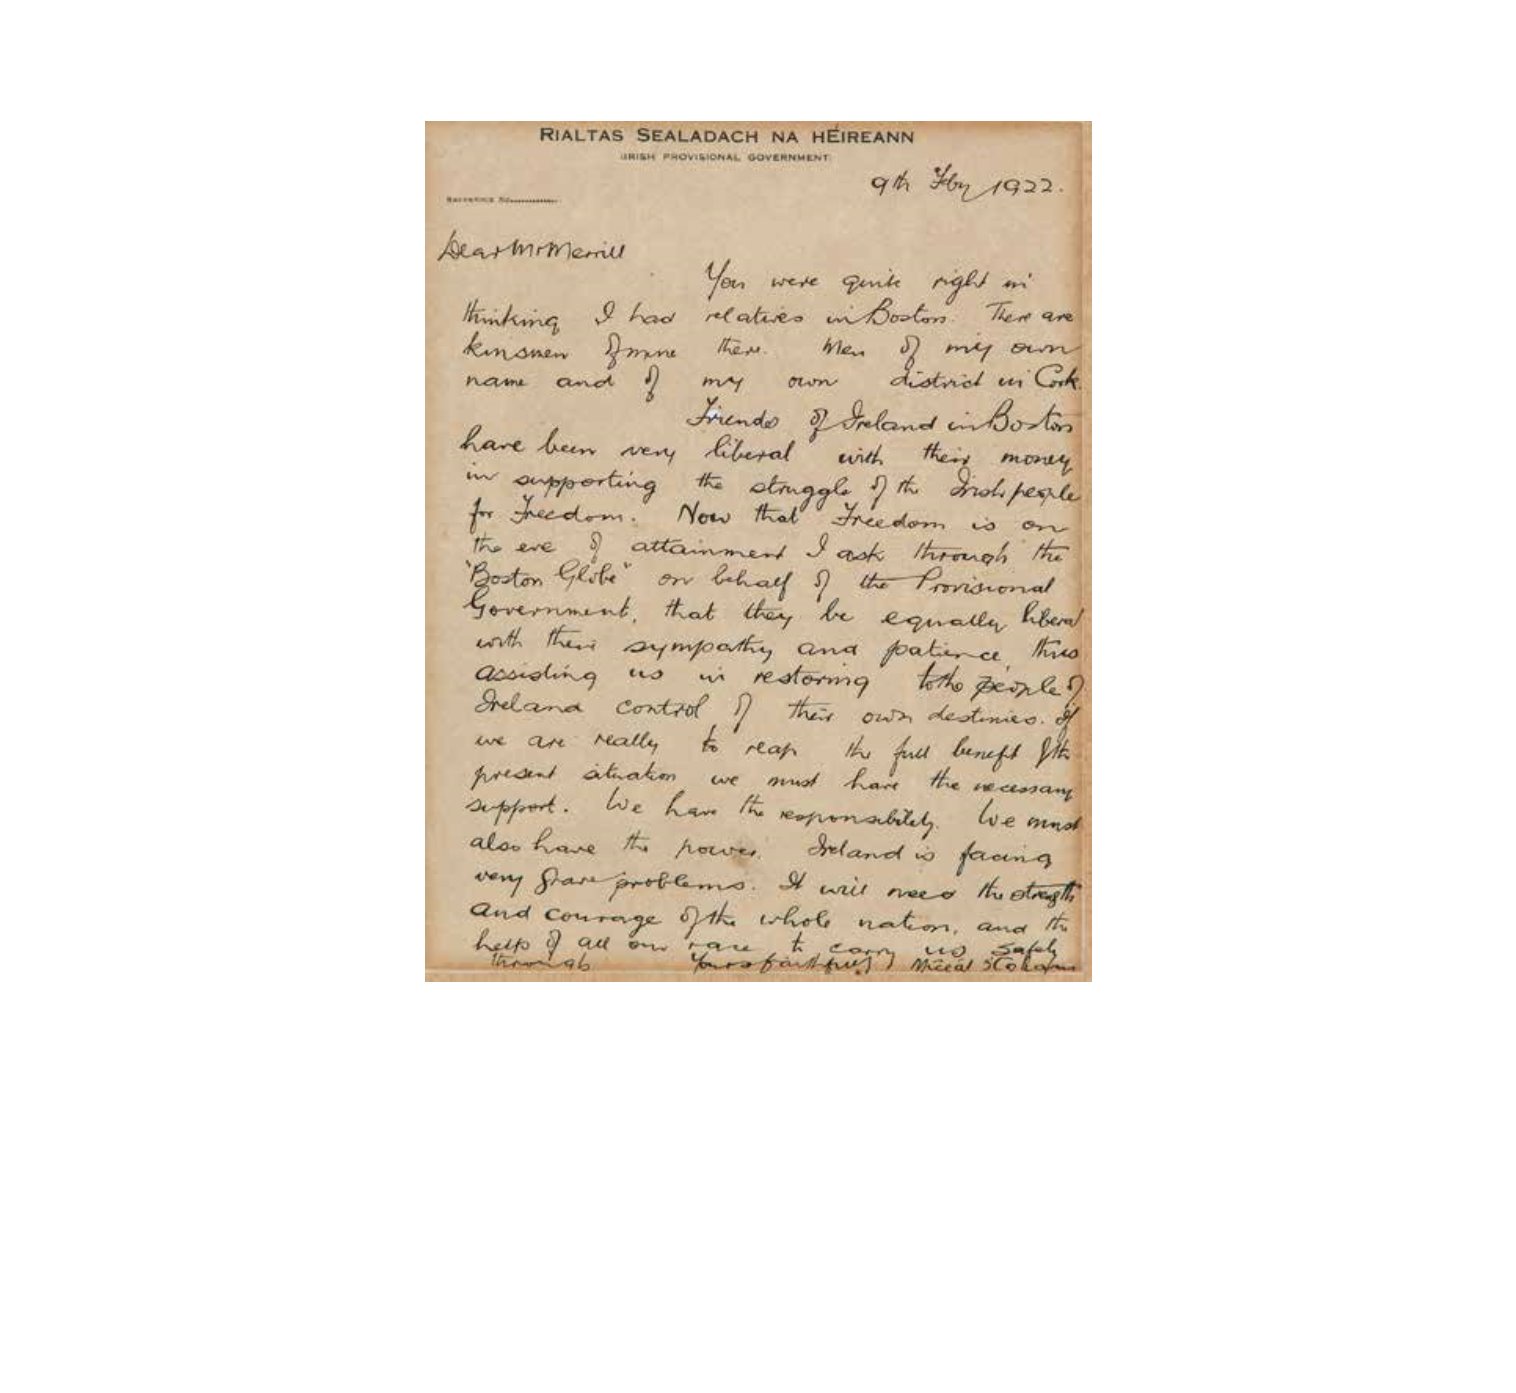 RIALTAS SEALADACH NA HÉIREANN
(IRISH PROVISIONAL GOVERNMENT)
9th Feby 1922.
REFERENCE No..............
Dear Mr Merrill
You were quite right in
thinking I had relatives in Boston. There are
kinsmen of mine there. Men of my own
name and of my own district in Cork.
Friends of Ireland in Boston
have been very liberal with their money
in supporting the struggle of the Irish people
for Freedom. Now that Freedom is on
the eve of attainment I ask through the
"Boston Globe" on behalf of the Provisional
Government, that they be equally liberal
with their sympathy and patience, thus
assisting us in restoring to the people of
Ireland control of their own destinies. If
we are really to reap the full benefit of the
present situation we must have the necessary
support. We have the responsibility. We must
also have the power. Ireland is facing
very grave problems. It will need the strength
and courage of the whole nation, and the
help of all our race to carry us safely
through Yours faithfully Mícéal